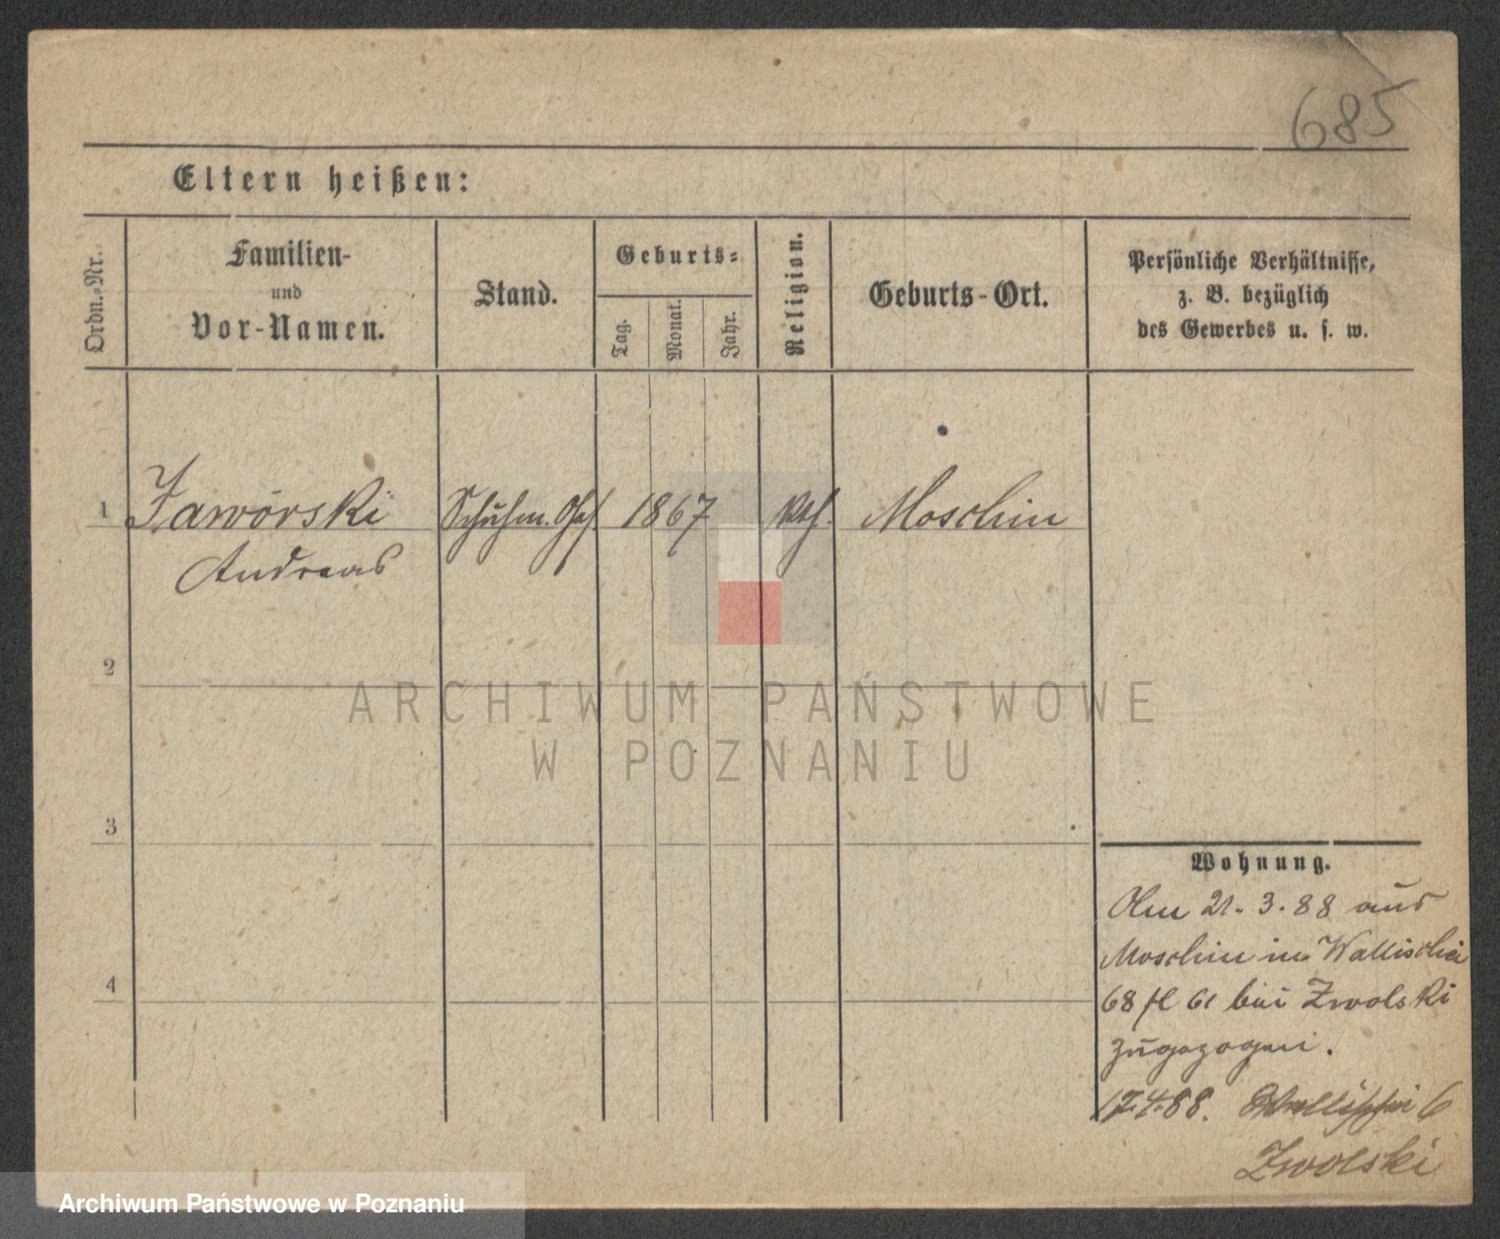 685
Eltern heißen:
Ordn.-Nr.
Familien-
und
Vor-Namen.
Stand.
Geburts-
Tag.
Monat.
Jahr.
Religion.
Geburts-Ort.
Persönliche Verhältnisse,
z. B. bezüglich
des Gewerbes u. s. w.
1 Jaworski Schuhm. Ges. 1867 kth. Moschin
Andreas
2
ARCHIWUM PAŃSTWOWE
W POZNANIU
3
4
Wohnung.
Am 21.3.88 aus
Moschin in Wallischei
68 61 bei Zwolski
zugezogen.
17.4.88. Wallischei 6
Zwolski
Archiwum Państwowe w Poznaniu